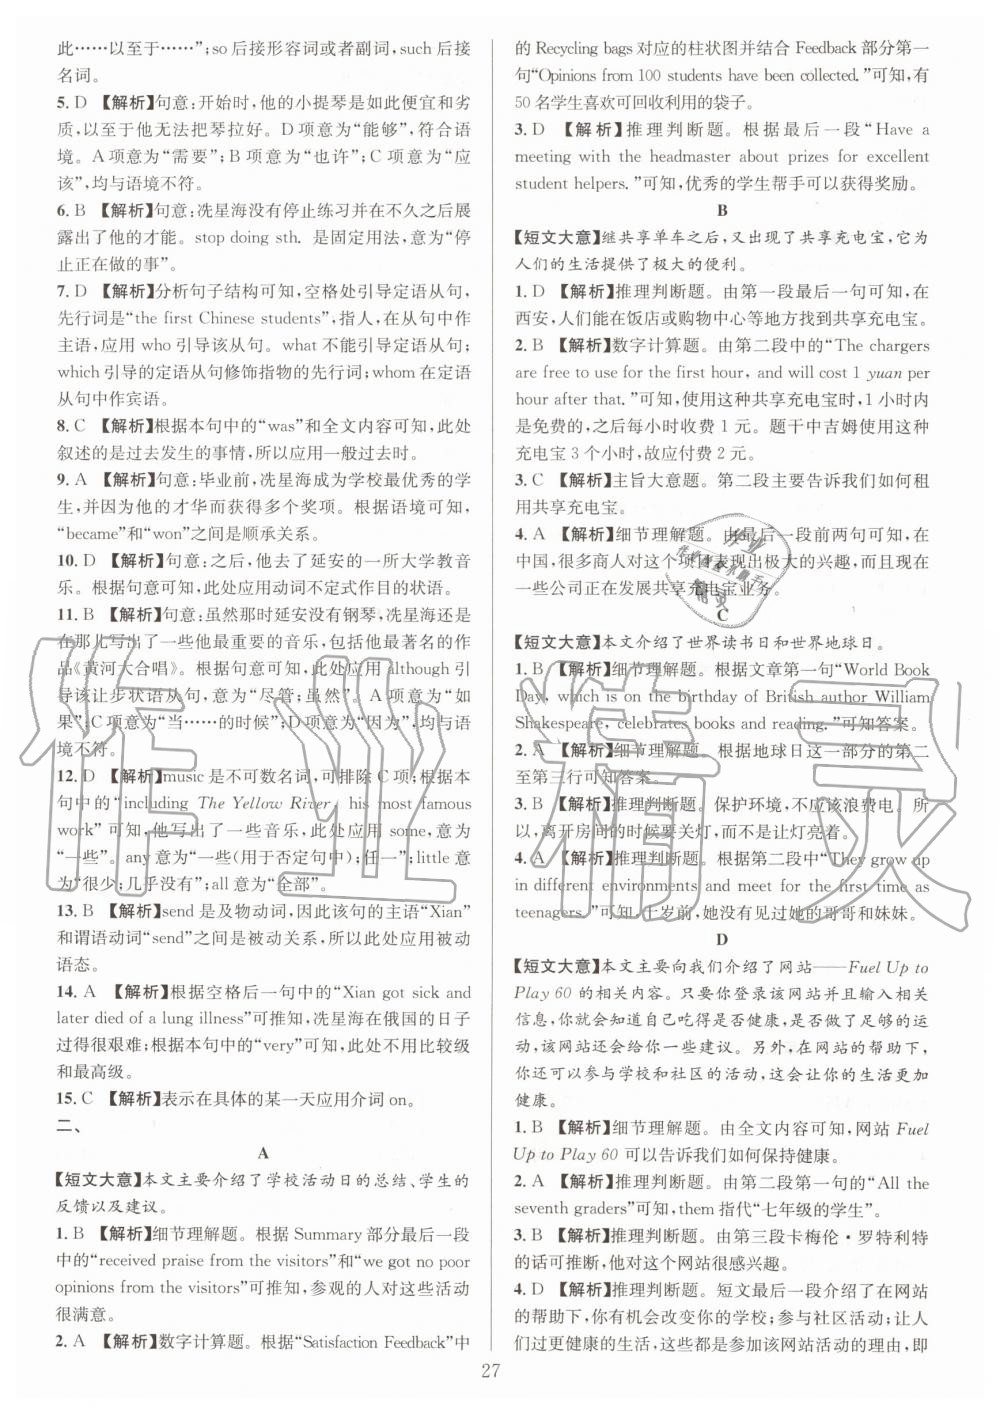 此……以至于……”;so后接形容词或者副词,such后接
名词。
5. D 【解析】句意:开始时,他的小提琴是如此便宜和劣
质,以至于他无法把琴拉好。D项意为“能够”,符合语
境。A项意为“需要”;B项意为“也许”;C项意为“应
该”,均与语境不符。
6. B 【解析】句意:冼星海没有停止练习并在不久之后展
露出了他的才能。stop doing sth. 是固定用法,意为“停
止正在做的事”。
7. D 【解析】分析句子结构可知,空格处引导定语从句,
先行词是“the first Chinese students”,指人,在从句中作
主语,应用who引导该从句。what不能引导定语从句;
which引导的定语从句修饰指物的先行词;whom在定语
从句中作宾语。
8. C 【解析】根据本句中的“was”和全文内容可知,此处
叙述的是过去发生的事情,所以应用一般过去时。
9. A 【解析】句意:毕业前,冼星海成为学校最优秀的学
生,并因为他的才华而获得多个奖项。根据语境可知,
“became”和“won”之间是顺承关系。
10. D 【解析】句意:之后,他去了延安的一所大学教音
乐。根据句意可知,此处应用动词不定式作目的状语。
11. B 【解析】句意:虽然那时延安没有钢琴,冼星海还是
在那儿写出了一些他最重要的音乐,包括他最著名的作
品《黄河大合唱》。根据句意可知,此处应用although引
导该让步状语从句,意为“尽管;虽然”。A项意为“如
果”;C项意为“当……的时候”;D项意为“因为”,均与语
境不符。
12. D 【解析】music是不可数名词,可排除C项;根据本
句中的“including The Yellow River, his most famous
work”可知,他写出了一些音乐,此处应用some,意为
“一些”。any意为“一些(用于否定句中);任一”;little意
为“很少;几乎没有”;all意为“全部”。
13. B 【解析】send是及物动词,因此该句的主语“Xian”
和谓语动词“send”之间是被动关系,所以此处应用被动
语态。
14. A 【解析】根据空格后一句中的“Xian got sick and
later died of a lung illness”可推知,冼星海在俄国的日子
过得很艰难;根据本句中的“very”可知,此处不用比较级
和最高级。
15. C 【解析】表示在具体的某一天应用介词on。
二、
A
【短文大意】本文主要介绍了学校活动日的总结、学生的
反馈以及建议。
1. B 【解析】细节理解题。根据Summary部分最后一段
中的“received praise from the visitors”和“we got no poor
opinions from the visitors”可推知,参观的人对这些活动
很满意。
2. A 【解析】数字计算题。根据“Satisfaction Feedback”中
的Recycling bags对应的柱状图并结合Feedback部分第一
句“Opinions from 100 students have been collected.”可知,有
50名学生喜欢可回收利用的袋子。
3. D 【解析】推理判断题。根据最后一段“Have a
meeting with the headmaster about prizes for excellent
student helpers.”可知,优秀的学生帮手可以获得奖励。
B
【短文大意】继共享单车之后,又出现了共享充电宝,它为
人们的生活提供了极大的便利。
1. D 【解析】推理判断题。由第一段最后一句可知,在
西安,人们能在饭店或购物中心等地方找到共享充电宝。
2. B 【解析】数字计算题。由第二段中的“The chargers
are free to use for the first hour, and will cost 1 yuan per
hour after that.”可知,使用这种共享充电宝时,1小时内
是免费的,之后每小时收费1元。题干中吉姆使用这种
充电宝3个小时,故应付费2元。
3. C 【解析】主旨大意题。第二段主要告诉我们如何租
用共享充电宝。
4. A 【解析】细节理解题。由最后一段前两句可知,在
中国,很多商人对这个项目表现出极大的兴趣,而且现在
一些公司正在发展共享充电宝业务。
C
【短文大意】本文介绍了世界读书日和世界地球日。
1. B 【解析】细节理解题。根据文章第一句“World Book
Day, which is on the birthday of British author William
Shakespeare, celebrates books and reading.”可知答案。
2. A 【解析】细节理解题。根据地球日这一部分的第二
至第三行可知答案。
3. B 【解析】推理判断题。保护环境,不应该浪费电。所
以,离开房间的时候要关灯,而不是让灯亮着。
4. A 【解析】推理判断题。根据第二段中“They grow up
in different environments and meet for the first time as
teenagers.”可知,十岁前,她没有见过她的哥哥和妹妹。
D
【短文大意】本文主要向我们介绍了网站——Fuel Up to
Play 60的相关内容。只要你登录该网站并且输入相关
信息,你就会知道自己吃得是否健康,是否做了足够的运
动,该网站还会给你一些建议。另外,在网站的帮助下,
你还可以参与学校和社区的活动,这会让你的生活更加
健康。
1. B 【解析】细节理解题。由全文内容可知,网站Fuel
Up to Play 60可以告诉我们如何保持健康。
2. A 【解析】推理判断题。由第二段第一句的“All the
seventh graders”可知,them指代“七年级的学生”。
3. B 【解析】推理判断题。由第三段卡梅伦·罗特利特
的话可推断,他对这个网站很感兴趣。
4. D 【解析】推理判断题。短文最后一段介绍了在网站
的帮助下,你有机会改变你的学校;参与社区活动;让人
们过更健康的生活,这些都是参加该网站活动的理由,即
27
作业精灵